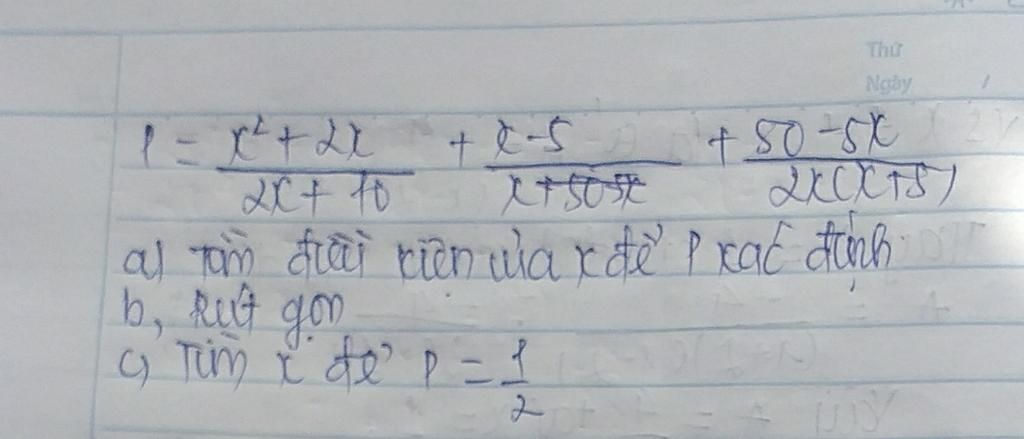 Thứ
Ngày /
P = x² + 2x / 2x + 10 + x - 5 / x + 50 - 5x + 50 - 5x / 2x(x+5)
a) Tìm điều kiện của x để P xác định
b, Rút gọn
c, Tìm x để P = 1/2